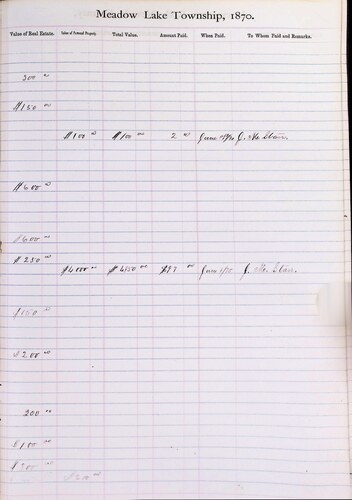 Meadow Lake Township, 1870.
Value of Real Estate. Value of Personal Property Total Value. Amount Paid. When Paid. To Whom Paid and Remarks.
300 00
$150 00
$100 00 $100 00 2 00 June J.
$600 00
$600 00
$250 00
$4000 00 00 June J.
$150 00
$200 00
200 00
$100 00
$200 00
00